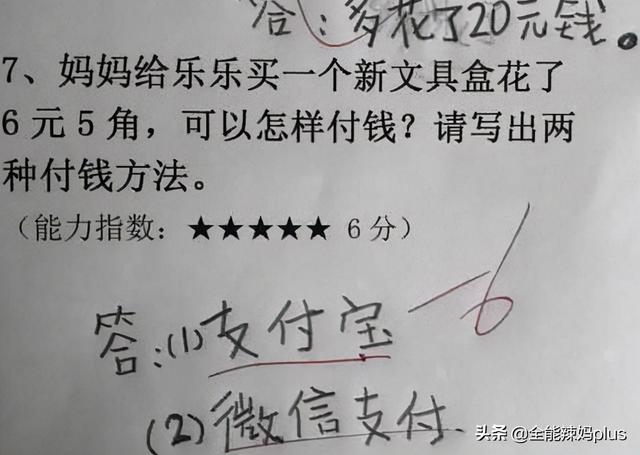 答：多花了20元钱。
7、妈妈给乐乐买一个新文具盒花了
6元5角，可以怎样付钱？请写出两
种付钱方法。
（能力指数：★★★★★ 6分）
-6
答：(1)支付宝
(2)微信支付.
头条 @全能辣妈plus